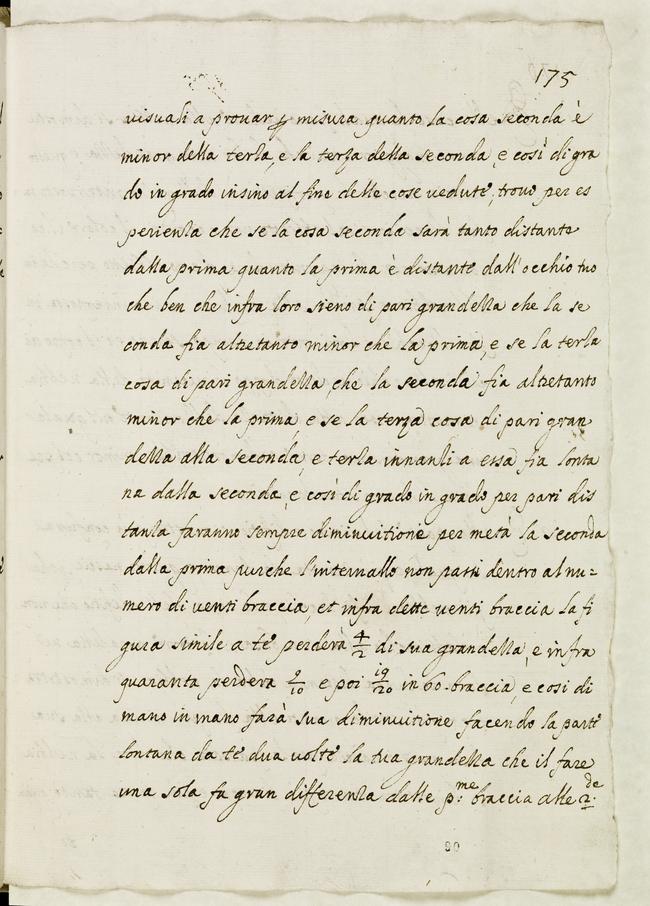 175
visuali a prouar p misura quanto la cosa seconda è
minor della terza, e la terza della seconda, e così di gra
do in grado insino al fine delle cose vedute, trouo per es
perienza che se la cosa seconda sarà tanto distante
dalla prima quanto la prima è distante dall'occhio tuo
che ben che infra loro sieno di pari grandezza che la se
conda fia altretanto minor che la prima, e se la terza
cosa di pari grandezza, che la seconda fia altretanto
minor che la prima, e se la terza cosa di pari gran
dezza alla seconda, e terza innanzi a essa fia lonta
na dalla seconda, e così di grado in grado per pari dis
tanza faranno sempre diminuitione per metà la seconda
dalla prima purche l'interuallo non passi dentro al nu=
mero di venti braccia, et infra dette venti braccia la fi
gura simile a te perderà 4/2 di sua grandezza, e infra
quaranta perdera 9/10 e poi 19/20 in 60. braccia, e cosi di
mano in mano farà sua diminuitione facendo la parte
lontana da te dua volte la tua grandezza che il fare
una sola fa gran differenza dalle p:me braccia alle 2:de
90